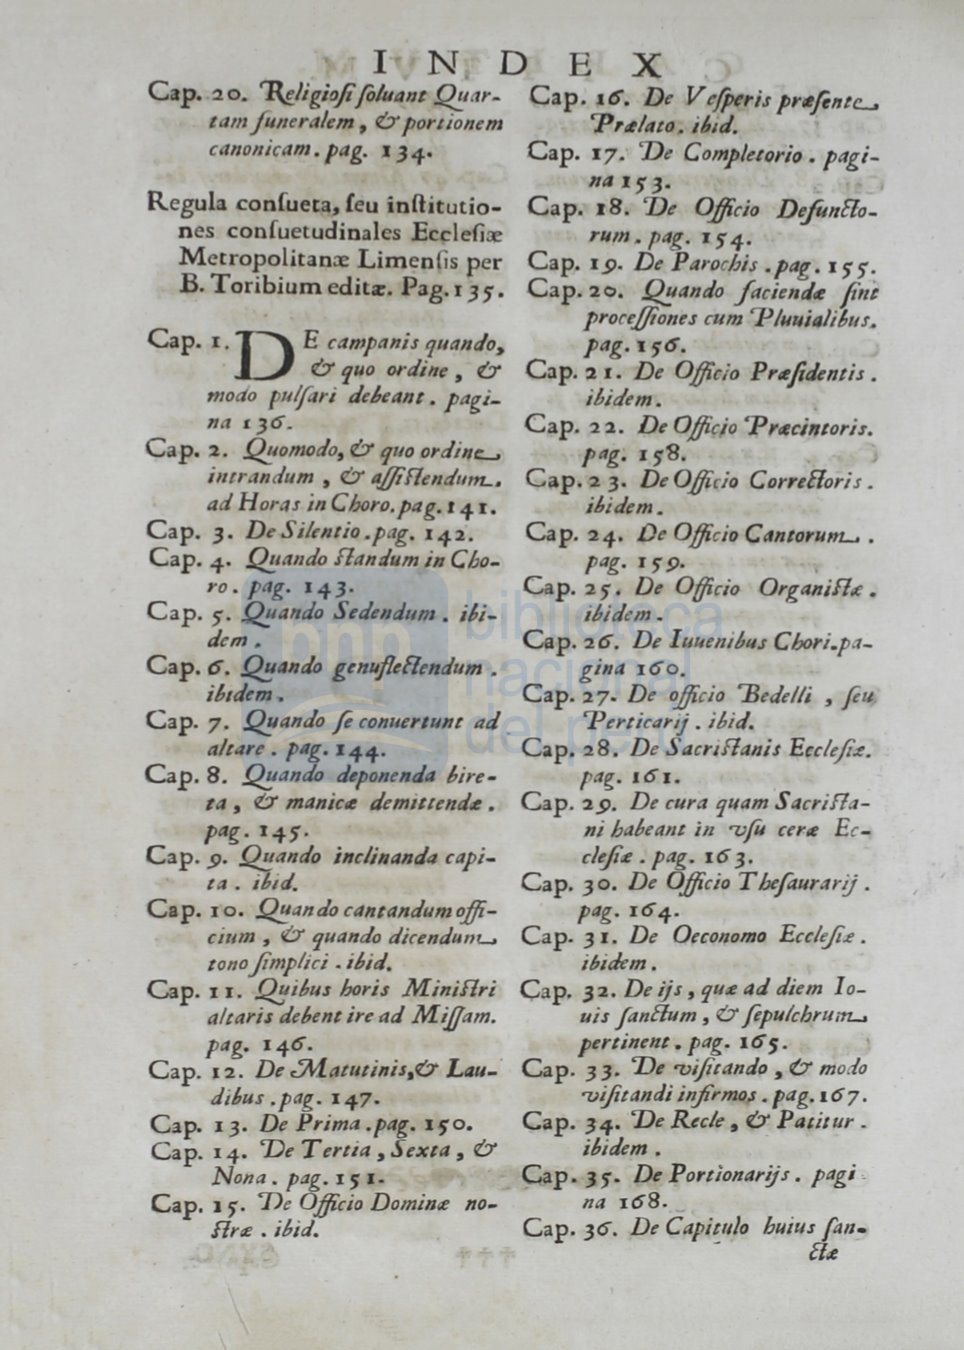 INDEX
Cap. 20. Religiosi soluant Quar-
tam funeralem, & portionem
canonicam. pag. 134.
Regula consueta, seu institutio-
nes consuetudinales Ecclesiæ
Metropolitanæ Limensis per
B. Toribium editæ. Pag. 135.
Cap. 1. DE campanis quando,
& quo ordine, &
modo pulsari debeant. pagi-
na 136.
Cap. 2. Quomodo, & quo ordine
intrandum, & assistendum.
ad Horas in Choro. pag. 141.
Cap. 3. De Silentio. pag. 142.
Cap. 4. Quando standum in Cho-
ro. pag. 143.
Cap. 5. Quando Sedendum. ibi-
dem.
Cap. 6. Quando genuflectendum.
ibidem.
Cap. 7. Quando se conuertunt ad
altare. pag. 144.
Cap. 8. Quando deponenda bire-
ta, & manicæ demittendæ.
pag. 145.
Cap. 9. Quando inclinanda capi-
ta. ibid.
Cap. 10. Quando cantandum offi-
cium, & quando dicendum
tono simplici. ibid.
Cap. 11. Quibus horis Ministri
altaris debent ire ad Missam.
pag. 146.
Cap. 12. De Matutinis, & Lau-
dibus. pag. 147.
Cap. 13. De Prima. pag. 150.
Cap. 14. De Tertia, Sexta, &
Nona. pag. 151.
Cap. 15. De Officio Dominæ no-
stræ. ibid.
Cap. 16. De Vesperis præsente
Prælato. ibid.
Cap. 17. De Completorio. pagi-
na 153.
Cap. 18. De Officio Defuncto-
rum. pag. 154.
Cap. 19. De Parochis. pag. 155.
Cap. 20. Quando faciendæ sint
processiones cum Pluuialibus.
pag. 156.
Cap. 21. De Officio Præsidentis.
ibidem.
Cap. 22. De Officio Præcintoris.
pag. 158.
Cap. 23. De Officio Correctoris.
ibidem.
Cap. 24. De Officio Cantorum.
pag. 159.
Cap. 25. De Officio Organistæ.
ibidem.
Cap. 26. De Iuuenibus Chori. pa-
gina 160.
Cap. 27. De officio Bedelli, seu
Perticarij. ibid.
Cap. 28. De Sacristanis Ecclesiæ.
pag. 161.
Cap. 29. De cura quam Sacrista-
ni habeant in vsu ceræ Ec-
clesiæ. pag. 163.
Cap. 30. De Officio Thesaurarij.
pag. 164.
Cap. 31. De Oeconomo Ecclesiæ.
ibidem.
Cap. 32. De ijs, quæ ad diem Io-
uis sanctum, & sepulchrum
pertinent. pag. 165.
Cap. 33. De visitando, & modo
visitandi infirmos. pag. 167.
Cap. 34. De Recle, & Patitur.
ibidem.
Cap. 35. De Portionarijs. pagi
na 168.
Cap. 36. De Capitulo huius san-
ctæ
bnp biblioteca
nacional
del